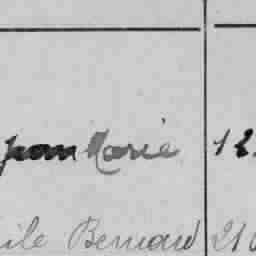 Jean Marie 12.
ile Bernard 21